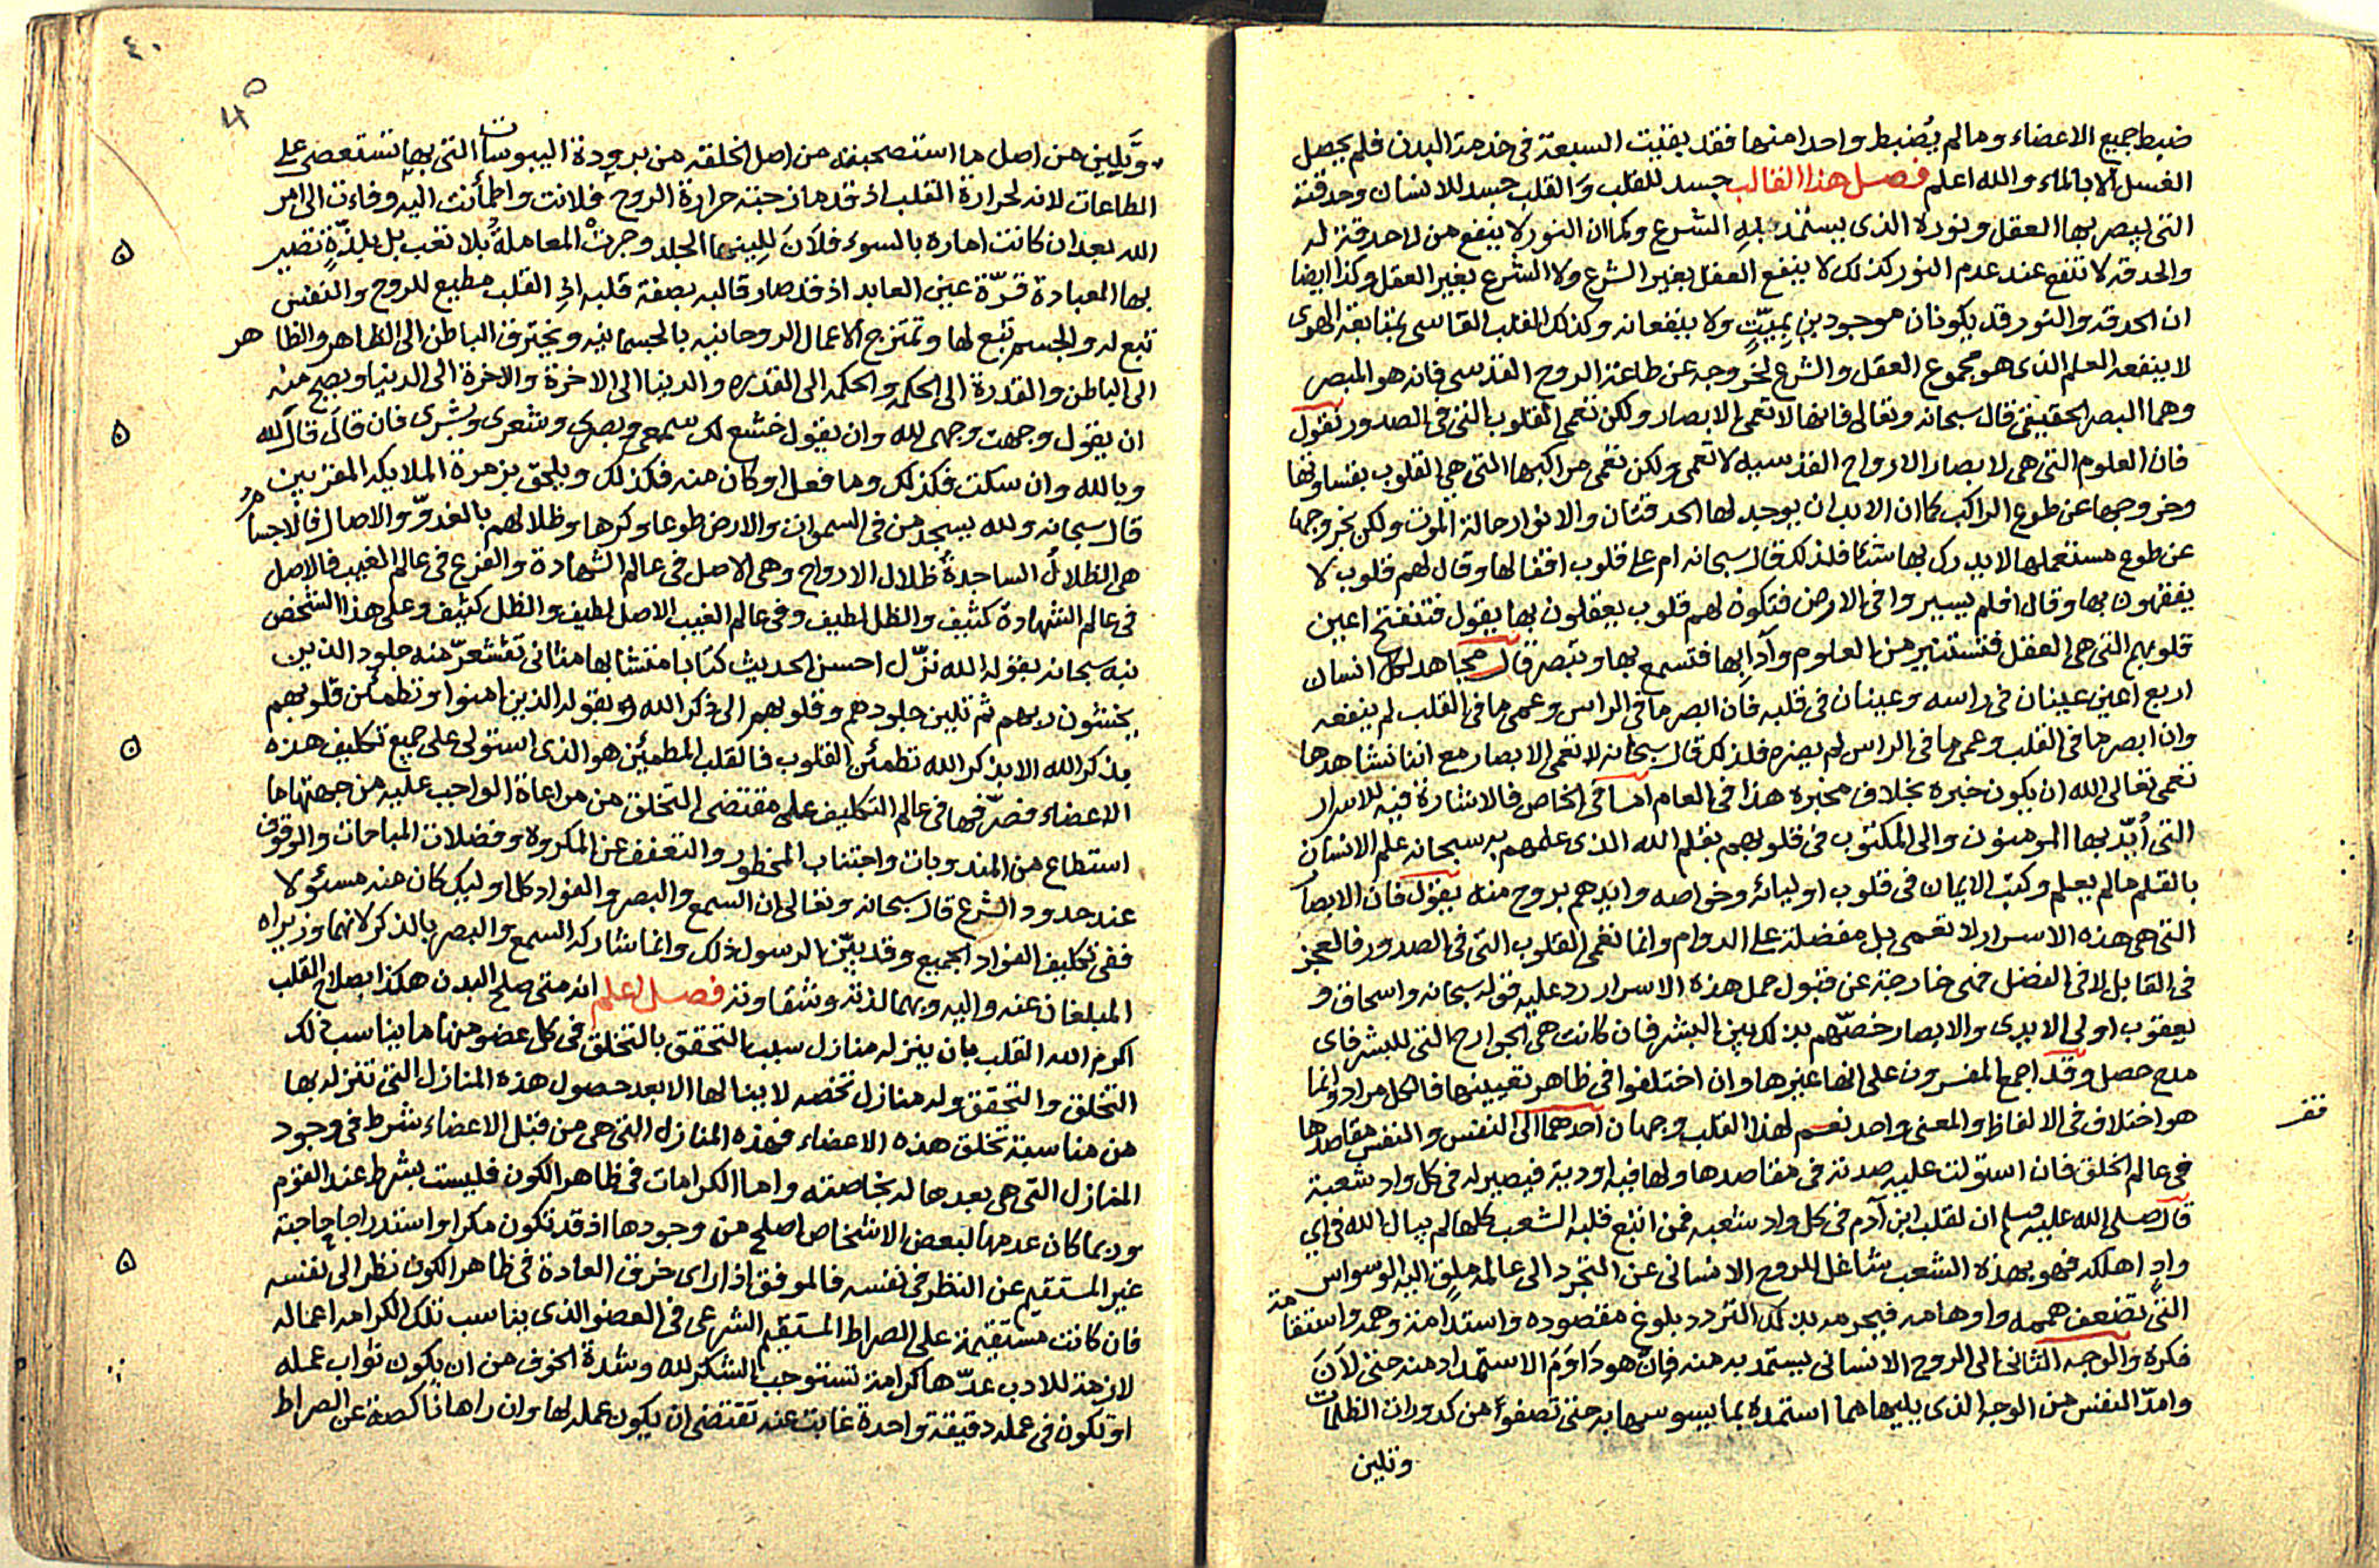 ضبط جميع الاعضاء وما لم يُضبط واحدا منها فقد بقيت السبعة في خدمة البدن فلم يحصل
الغسل الا بالماء والله اعلم فصل هذا القالب جسد للقلب وَالقلب جسد للانسان وحدقته
التي يبصر بها العقل ونوره الذي يستمد به الشرع وكما ان النور لا ينفع من لا حدقة له
والحدقه لا تنفع عند عدم النور كذلك لا ينفع العقل بغير الشرع ولا الشرع بغير العقل وكذا ايضا
ان الحدقه والنور قد يكونان موجودين بميّتٍ ولا ينفعانه وكذلك القلب القاسي بمتابعة الهوى
لا ينفعه العلم الذي هو مجموع العقل والشرع لخروجه عن طاعة الروح القدسي فانه هو المبصر
وهما البصر الحقيقي قال سبحانه وتعالى فانها لا تعمى الابصار ولكن تعمى القلوب التي في الصدور نقول
فان العلوم التي هي لابصار الارواح القدسيه لا تعمى ولكن تعمى مراكبها التي هي القلوب بقساوتها
وخروجها عن طوع الراكب كما ان الابدان يوجد لها الحدقتان والانوار حالة الموت ولكن بخروجها
عن طوع مستعملها لا يدرك بها شئا فلذلك قال سبحانه ام على قلوب اقفالها وقال لهم قلوب لا
يفقهون بها وقال افلم يسيروا في الارض فتكون لهم قلوب يعقلون بها يقول فتنفتح اعين
قلوبهم التي هي العقل فتستنير من العلوم وآدابها فتسمع بها وتبصر قال مجاهد لكل انسان
اربع اعين عينان في راسه وعينان في قلبه فان ابصر ما في الراس وعمى ما في القلب لم ينفعه
وان ابصر ما في القلب وعمى ما في الراس لم يضره فلذلك قال سبحانه لا تعمى الابصار مع اننا نشاهدها
تعمى تعالى الله ان يكون خبره بخلاف مخبره هذا في العام اما في الخاص فالاشارة فيه للاسرار
التي أُيّد بها المومنون والى المكتوب في قلوبهم بقلم الله الذي علمهم به سبحانه علم الانسان
بالقلم ما لم يعلم وكتب الايمان في قلوب اوليائه وخواصه وايدهم بروح منه يقول فان الابصار
التي هي هذه الاسرار لا تعمى بل مفضلة على الدوام وانما تعمى القلوب التي في الصدور فالعجز
في القابل لا في الفضل فمن خارجة عن قبول حمل هذه الاسرار رد عليه قوله سبحانه واسحاق و
يعقوب اولى الايدى والابصار خصّهم بذلك بين البشر فان كانت هي الجوارح التي للبشر فاى
مدح حصل وقد اجمع المفسرون على انها غيرها وان اختلفوا في ظاهر تعيينها فالكل مراد وانما
هو اختلاف في الالفاظ والمعنى واحد نعم لهذا القلب وجهان احدهما الى النفس والنفس مقاصدها
في عالم الخلق فان استولت عليه صدته في مقاصدها ولها فيه اودية فيصير له في كل واد شعبة
قال صلى الله عليه وسلم ان لقلب ابن آدم في كل واد شعبه فمن اتبع قلبه الشعب كلها لم يبال الله في اي
وادٍ اهلكه فهو بهذه الشعب شاغل للروح الانساني عن التجرد الى عالمه ملقٍ اليه الوسواس
التي تضعف هممه واوهامه فيحرمه بذلك التردد بلوغ مقصوده واستدامة وهمه واستقامة
فكره والوجه الثاني الى الروح الانساني يستمد به منه فان هو دَاوَمَ الاستمداد منه حتى لَانَ
وامدّ النفس من الوجه الذي يليها مما استمده بما يسوسها به حتى تصفوا من كدورات الظلمات
وتلين
فقر
٤٠
وَتلين من اصل ما استصحبته من اصل الخلقه من برودة اليبوسات التي بها تستعصى على
الطاعات لانه لحرارة القلب اذ قد مازجته حرارة الروح فلانت واطمأنت اليه وفاءت الى امر
الله بعد ان كانت امارة بالسوء فلَانَ لِلِينها الجلد وجرت المعاملة بلا تعب بل بلذّةٍ تصير
بها العبادة قرّة عين العابد اذ قد صار قالبه بصفة قلبه اى القلب مطيع للروح والنفس
تبع له والجسم تبع لها وتمتزج الاعمال الروحانيه بالجسمانيه ويخترق الباطن الى الظاهر والظاهر
الى الباطن والقدرة الى الحكمه والحكمه الى القدره والدنيا الى الاخرة والاخرة الى الدنيا ويصح منه
ان يقول وجهت وجهى لله وان يقول خشع لك سمعى وبصرى وشعرى وبشرى فان قال قال لله
وبالله وان سكت فكذلك وما فعل او كان منه فكذلك ويلحق بزمرة الملايكه المقربين
قال سبحانه ولله يسجد من في السموات والارض طوعا وكرها وظلالهم بالغدوّ والاصال فالاجسام
هي الظلالُ الساجدةُ ظلال الارواح وهي الاصل في عالم الشهادة والفرع في عالم الغيب فالاصل
في عالم الشهادة كثيف والظل لطيف وفي عالم الغيب الاصل لطيف والظل كثيف وعلى هذا الشخص
نبه سبحانه بقوله الله نزّل احسن الحديث كتابا متشابها مثاني تقشعرّ منه جلود الذين
يخشون ربهم ثم تلين جلودهم وقلوبهم الى ذكر الله وبقوله الذين امنوا وتطمئن قلوبهم
بذكر الله الا بذكر الله تطمئن القلوب فالقلب المطمئن هو الذي استولى على جميع تكليف هذه
الاعضاء فصرّفها في عالم التكليف على مقتضى التخلق من مراعاة الواجب عليه من جهتها ما
استطاع من المندوبات واجتناب المحظور والتعفف عن المكروه وفضلات المباحات والوقوف
عند حدود الشرع قال سبحانه وتعالى ان السمع والبصر والفؤاد كل اوليك كان عنه مسئولا
ففى تكليف الفؤاد الجميع وقد بيّن الرسول ذلك وانما شاركه السمع والبصر بالذكر لانهما وزيراه
المبلغان عنه واليه وبهما لذته وشقاوته فصل اعلم انه متى صلح البدن هكذا بصلاح القلب
اكرم الله القلب بان ينزله منازل سبب التحقق بالتخلق في كل عضو منها ما يناسب ذلك
التخلق والتحقق وله منازل تخصه لا ينالها الا بعد حصول هذه المنازل التي تنزله بها
من مناسبة تخلق هذه الاعضاء فهذه المنازل التي هي من قبل الاعضاء شرط في وجود
المنازل التي هي بعدها له بخاصته واما الكرامات في ظاهر الكون فليست بشرط عند القوم
وربما كان عدمها لبعض الاشخاص اصلح من وجودها اذ قد تكون مكرا واستدراجا حاجبة
غير المستقيم عن النظر في نفسه فالموفق اذا راى خرق العادة في ظاهر الكون نظر الى نفسه
فان كانت مستقيمة على الصراط المستقيم الشرعى في العضو الذي يناسب تلك الكرامه اعماله
لازمة للادب عدّها كرامة تستوجب الشكر لله وشدة الخوف من ان يكون ثواب عمله
او تكون في عمله دقيقة واحدة غابت عنه تقتضى ان يكون عمله لها وان راها ناكصة عن الصراط